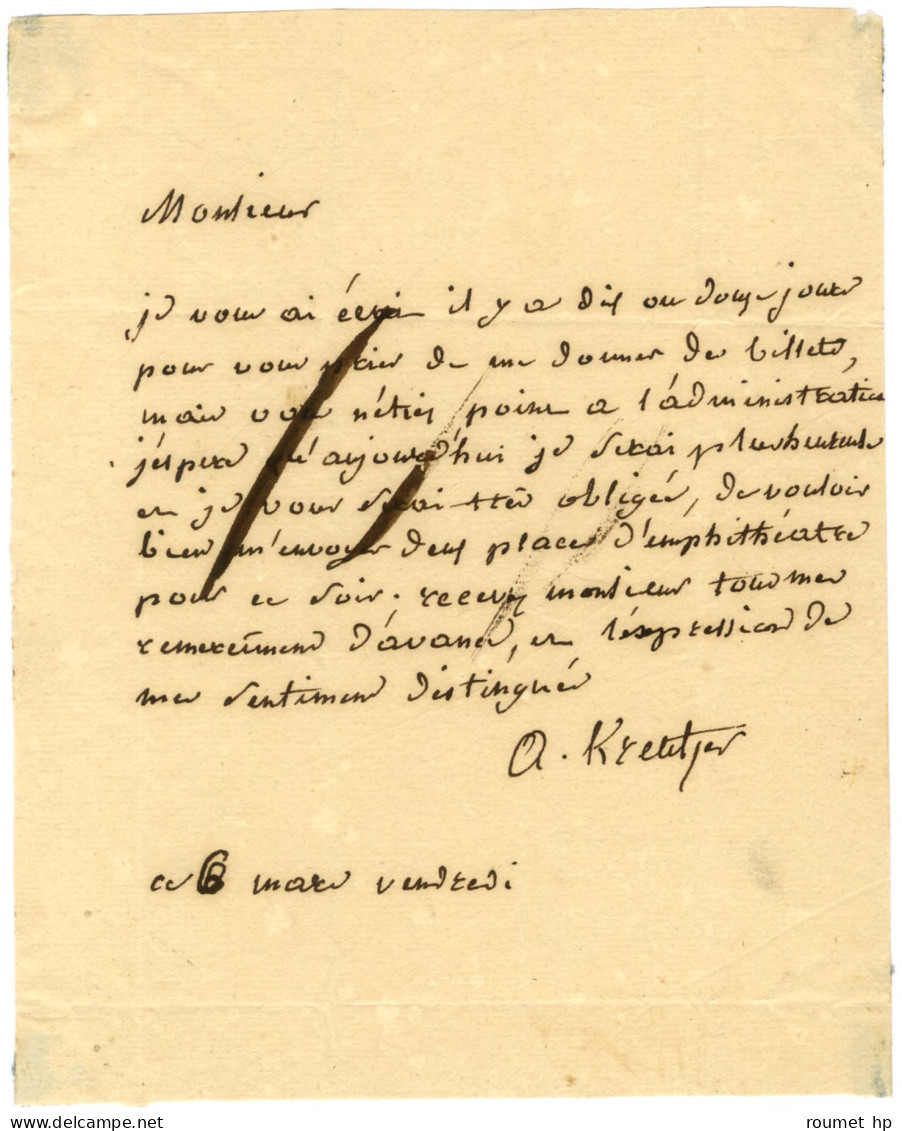 Monsieur
je vous ai écrit il y a dix ou douze jours
pour vous prier de me donner des billets,
mais vous n'étiez point a l'administration
j'éspere qu'aujourd'hui je serai plus heureuse
et je vous serai très obligée, de vouloir
bien m'envoyer deux places d'emphithéatre
pour ce soir. recevez monsieur tous mes
remerciments d'avance, et l'éxpression de
mes sentiments distingués
A. Kreutzer
ce 6 mars vendredi
roumet hp